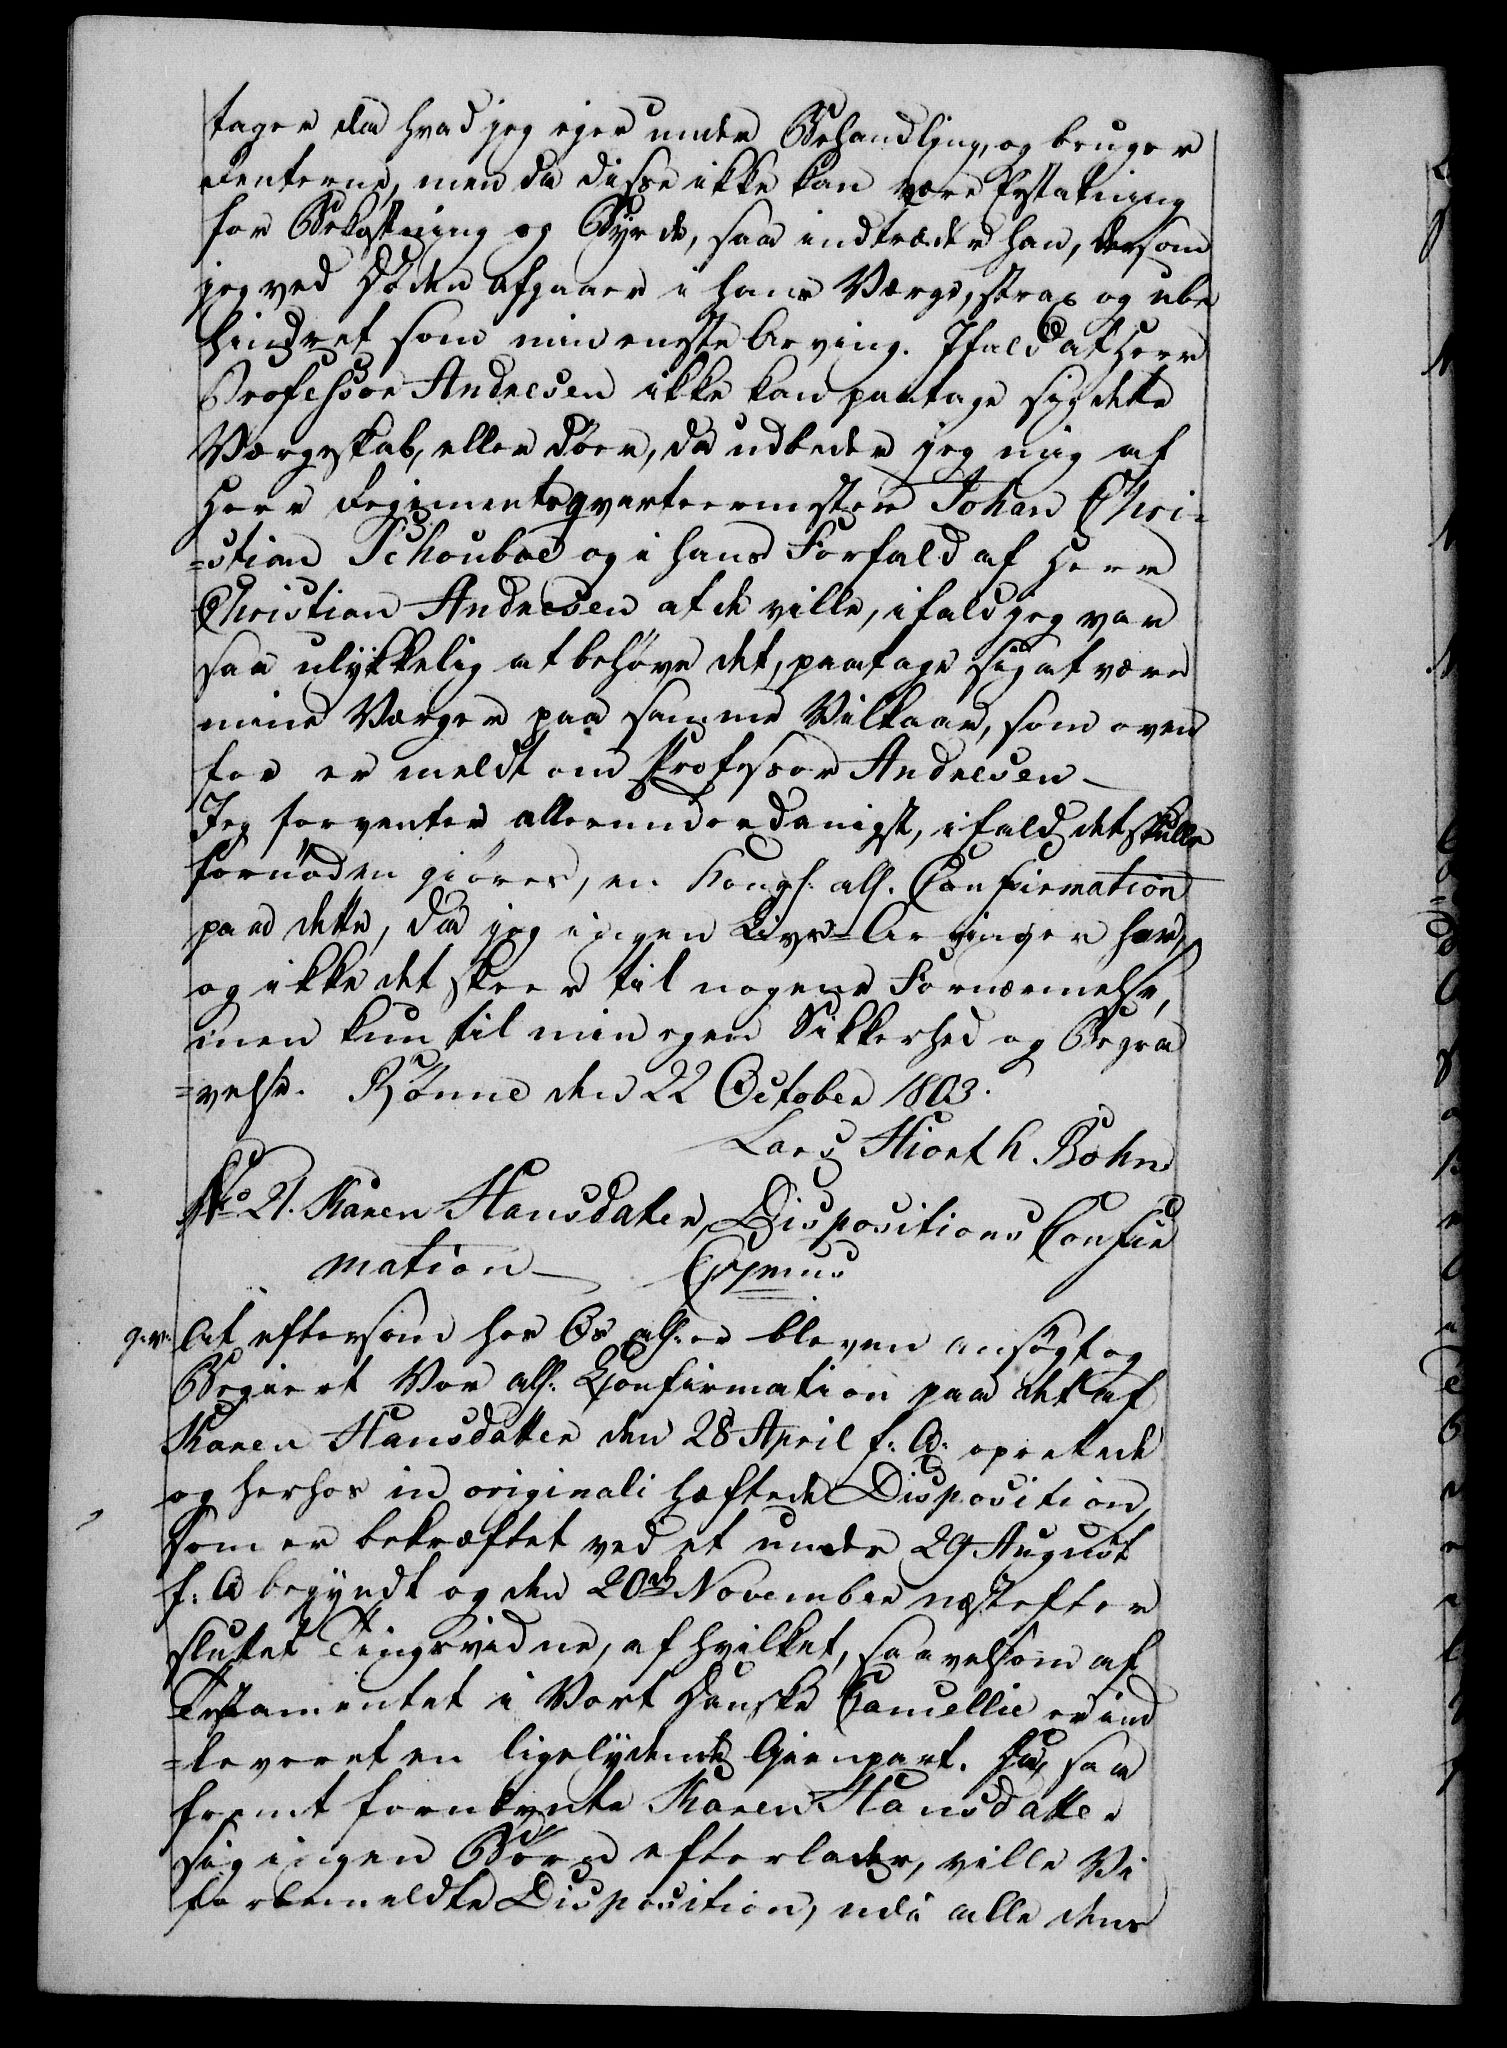 tager da hvad jeg ejer under Behandling, og bruger
Renterne, men da disse ikke kan være Erstatning
for Bekostning og Byrde, saa indtræder han, dersom
jeg ved Døden afgaaer i hans Værge, strax og ube
hindret som min eneste Arving. Ifald at Herr
Professor Andresen ikke kan paatage sig dette
Værgeskab, eller döer, da udbeder jeg mig af
Herr Regimentsqvarteermester Johan Chri-
=stian Schouboe og i hans Forfald af Herr
Christian Andresen at de ville, ifald jeg var
saa ulykkelig at behöve det, paatage sig at være
mine Værger paa samme Vilkaar, som oven
for er meldt om Professor Andresen
Jeg forventer allerunderdanigst, ifald det skulle
fornöden giöres, en Kongl. all. Confirmation
paa dette, da jeg ingen Livs=Arvinger har,
og ikke det skeer til nogens Fornærmelse,
men kun til min egen Sikkerhed og Begra
=velse. Rönne den 22 October 1803.
Lars Hiorth Bohn
No 21. Karen Hansdatter, Dispositions Confir
mation
g. v. At eftersom hos Os all. er bleven ansögt og
Begiert Vor all. Confirmation paa det af
Karen Hansdatter den 28 April f. A. oprettede
og herhos in originali hæftede Disposition,
som er bekræftet ved et under 29 August
f. A begyndt og den 20de November næstefter
sluttet Tingsvidne, af hvilket, saavelsom af
Testamentet i Vort Danske Cancellie er ind
=leveret en ligelydende Gienpart. Da, saa
fremt fornævnte Karen Hansdatter
sig ingen Börn efterlader, ville Vi
forbemeldte Disposition, udi alle dens